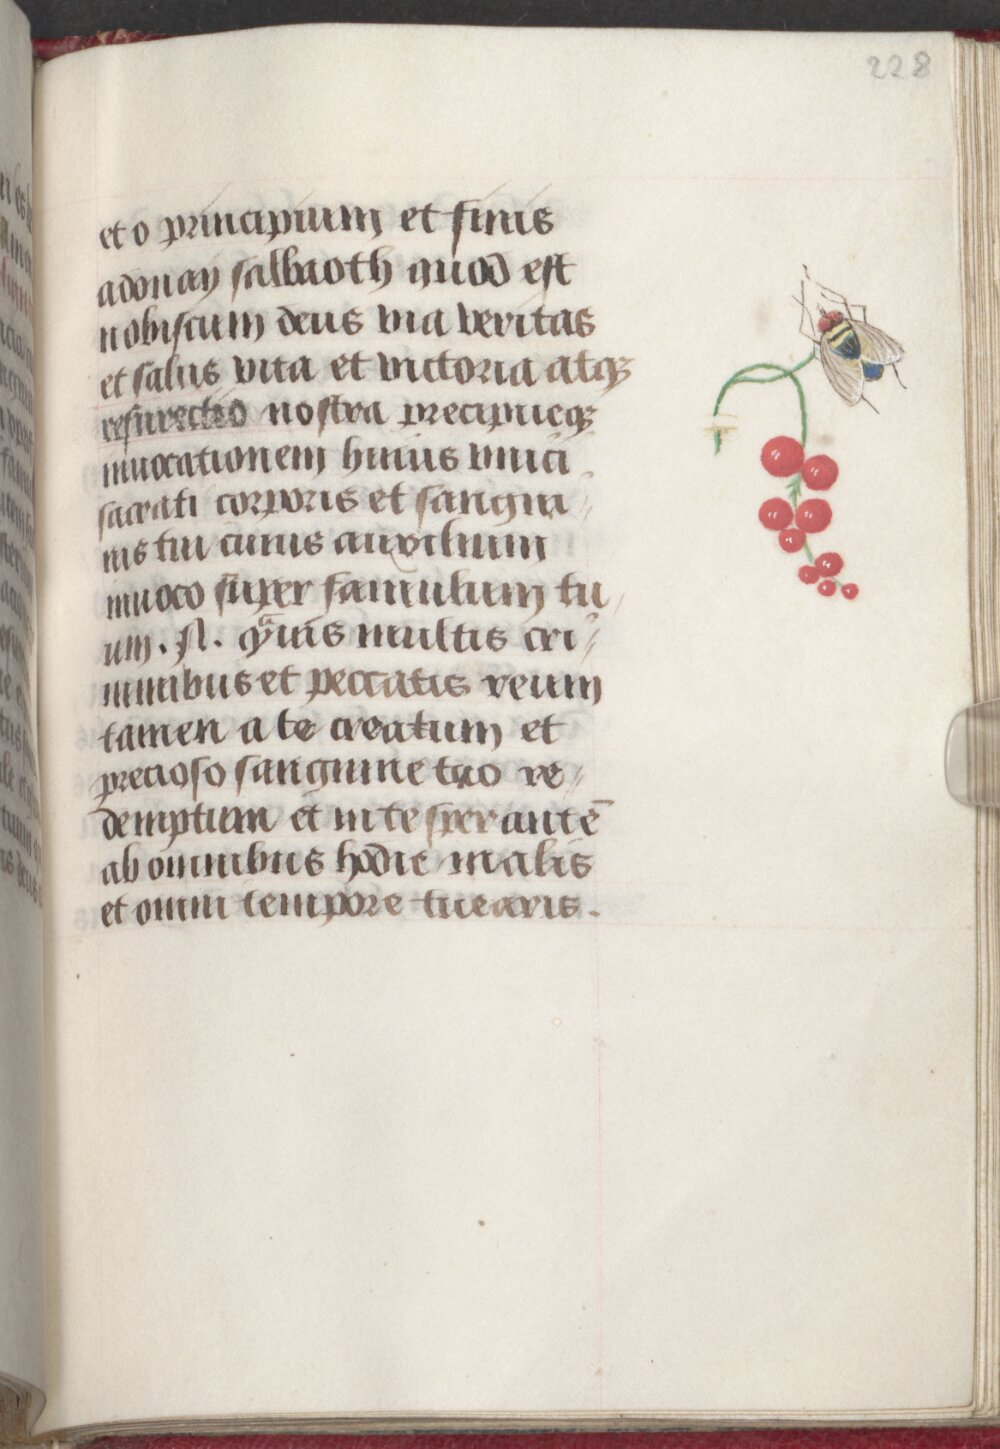 228
et o principium et finis
adonay salbaoth quod est
nobiscum deus via veritas
et salus vita et victoria atqꝫ
resurectio nostra precipueqꝫ
inuocationem huius vnici
sacrati corporis et sangui
nis tui cuius auxilium
inuoco super famulum tu
um . N . qͣuis multis cri
minibus et peccatis reum
tamen a te creatum et
precioso sanguine tuo re
demptum et in te sperantē
ab omnibus hodie malis
et omni tempore tuearis .